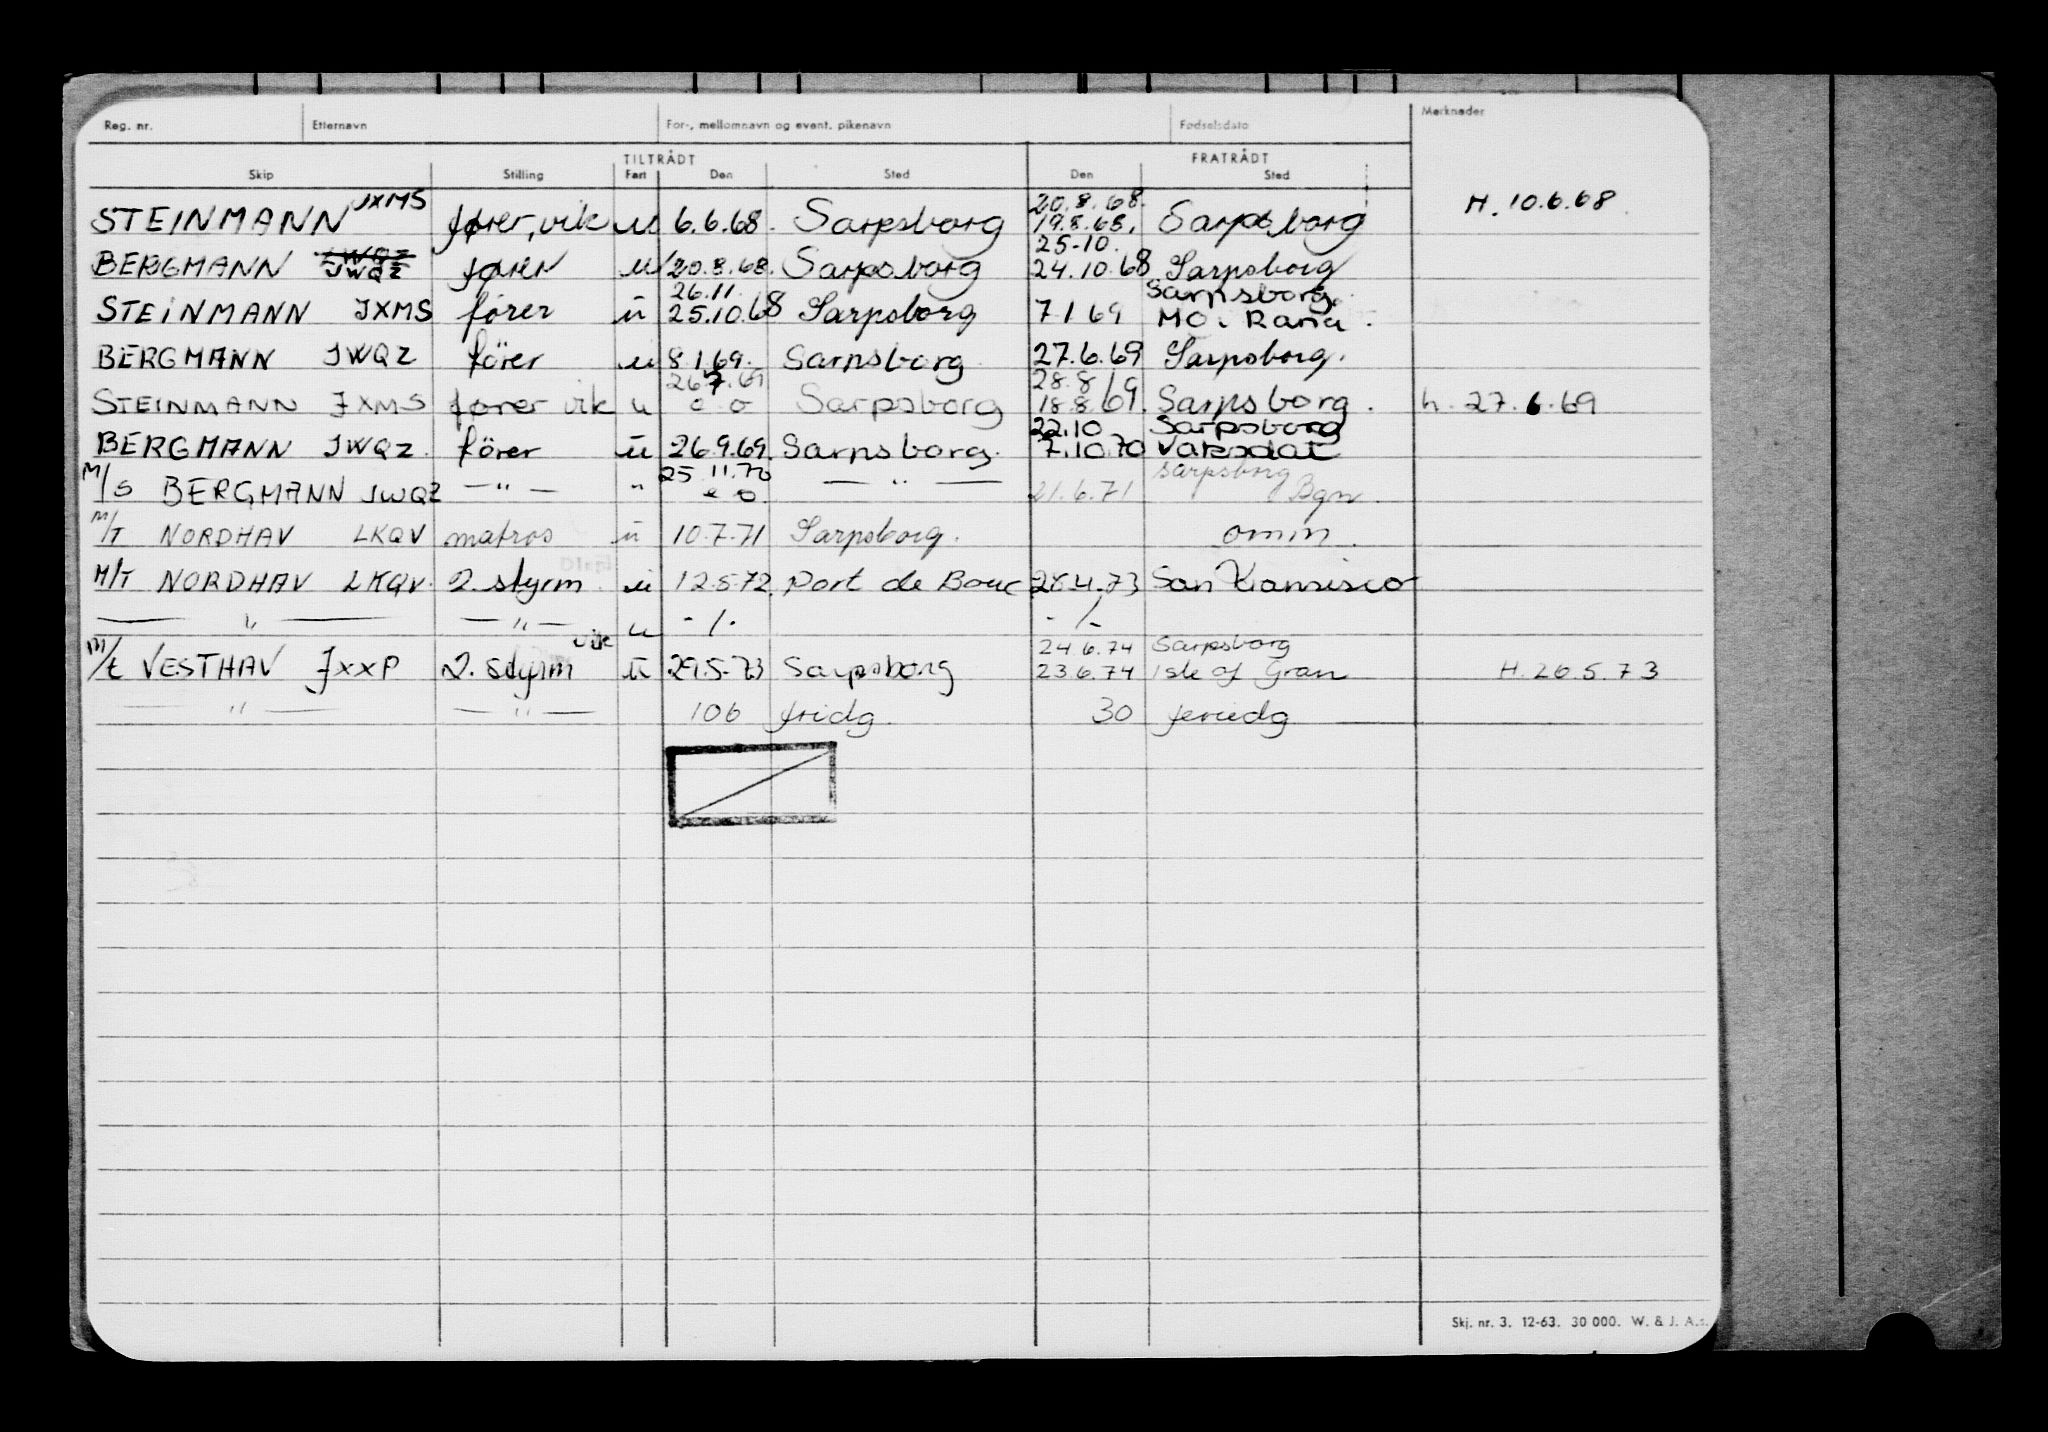 Reg. nr. Etternavn For-, mellomnavn og event. pikenavn Fødselsdato Merknader
TILTRÅDT FRATRÅDT
Skip Stilling Fart Den Sted Den Sted
JXMS 20.8.68. H. 10.6.68
STEINMANN fører, vik u 6.6.68. Sarpsborg 19.8.68. Sarpsborg
25-10.
BERGMANN JWQZ fører u 20.8.68. Sarpsborg 24.10.68 Sarpsborg
26.11. Sarpsborg.
STEINMANN JXMS fører u 25.10.68 Sarpsborg 7 1 69 MO i Rana.
BERGMANN JWQZ fører u 8.1.69. Sarpsborg 27.6.69 Sarpsborg.
26.7.69 28.8
STEINMANN JXMS fører vik u o o Sarpsborg 18.8.69. Sarpsborg. h. 27.6.69
22.10 Sarpsborg
BERGMANN JWQZ. fører u 26.9.69. Sarpsborg. 7.10.70 Vaksdal
25.11.70 Sarpsborg
M/S BERGMANN JWQZ — " — " o o. — " — 21.6.71 Bgn.
M/T NORDHAV LKQV matros u 10.7.71 Sarpsborg. omm.
M/T NORDHAV LKQV. 2. styrm. u 12.5.72. Port de Bouc 28.4.73 San Fransisco
— " — — " — u - / - - / -
vik 24.6.74 Sarpsborg
M/t VESTHAV JXXP 2. styrm u 29.5.73 Sarpsborg 23.6.74 Isle of Gran H. 26.5.73
— " — — " — 106 fridg. 30 feriedg
Skj. nr. 3. 12-63. 30 000. W. & J. A.s.